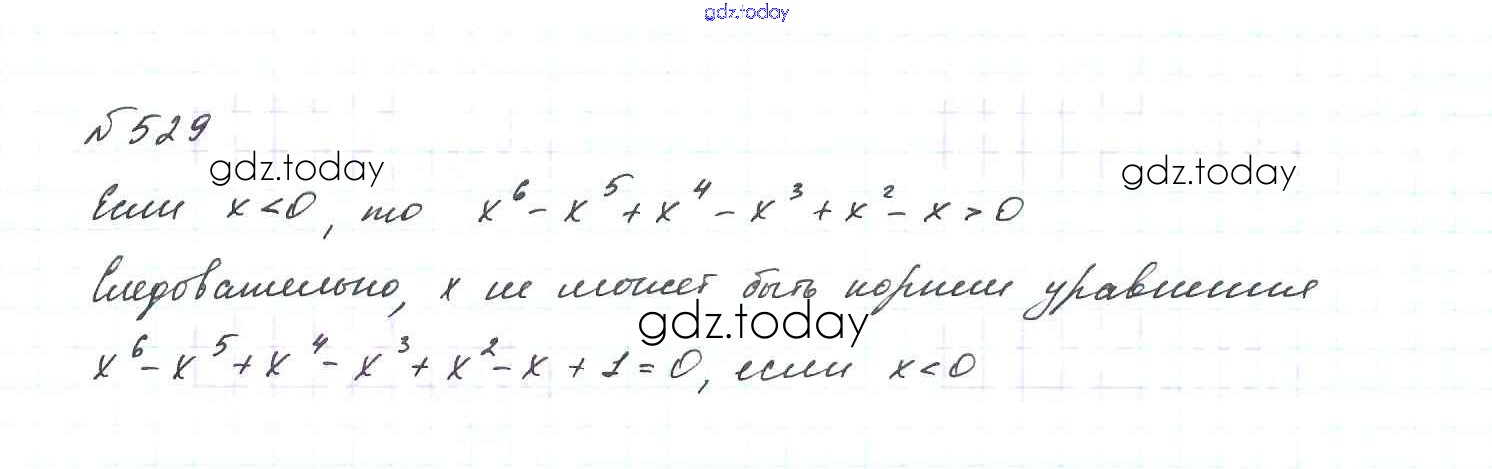 gdz.today
№ 529
gdz.today gdz.today
Если x < 0, то x⁶ - x⁵ + x⁴ - x³ + x² - x > 0
Следовательно, x не может быть корнем уравнения
gdz.today
x⁶ - x⁵ + x⁴ - x³ + x² - x + 1 = 0, если x < 0